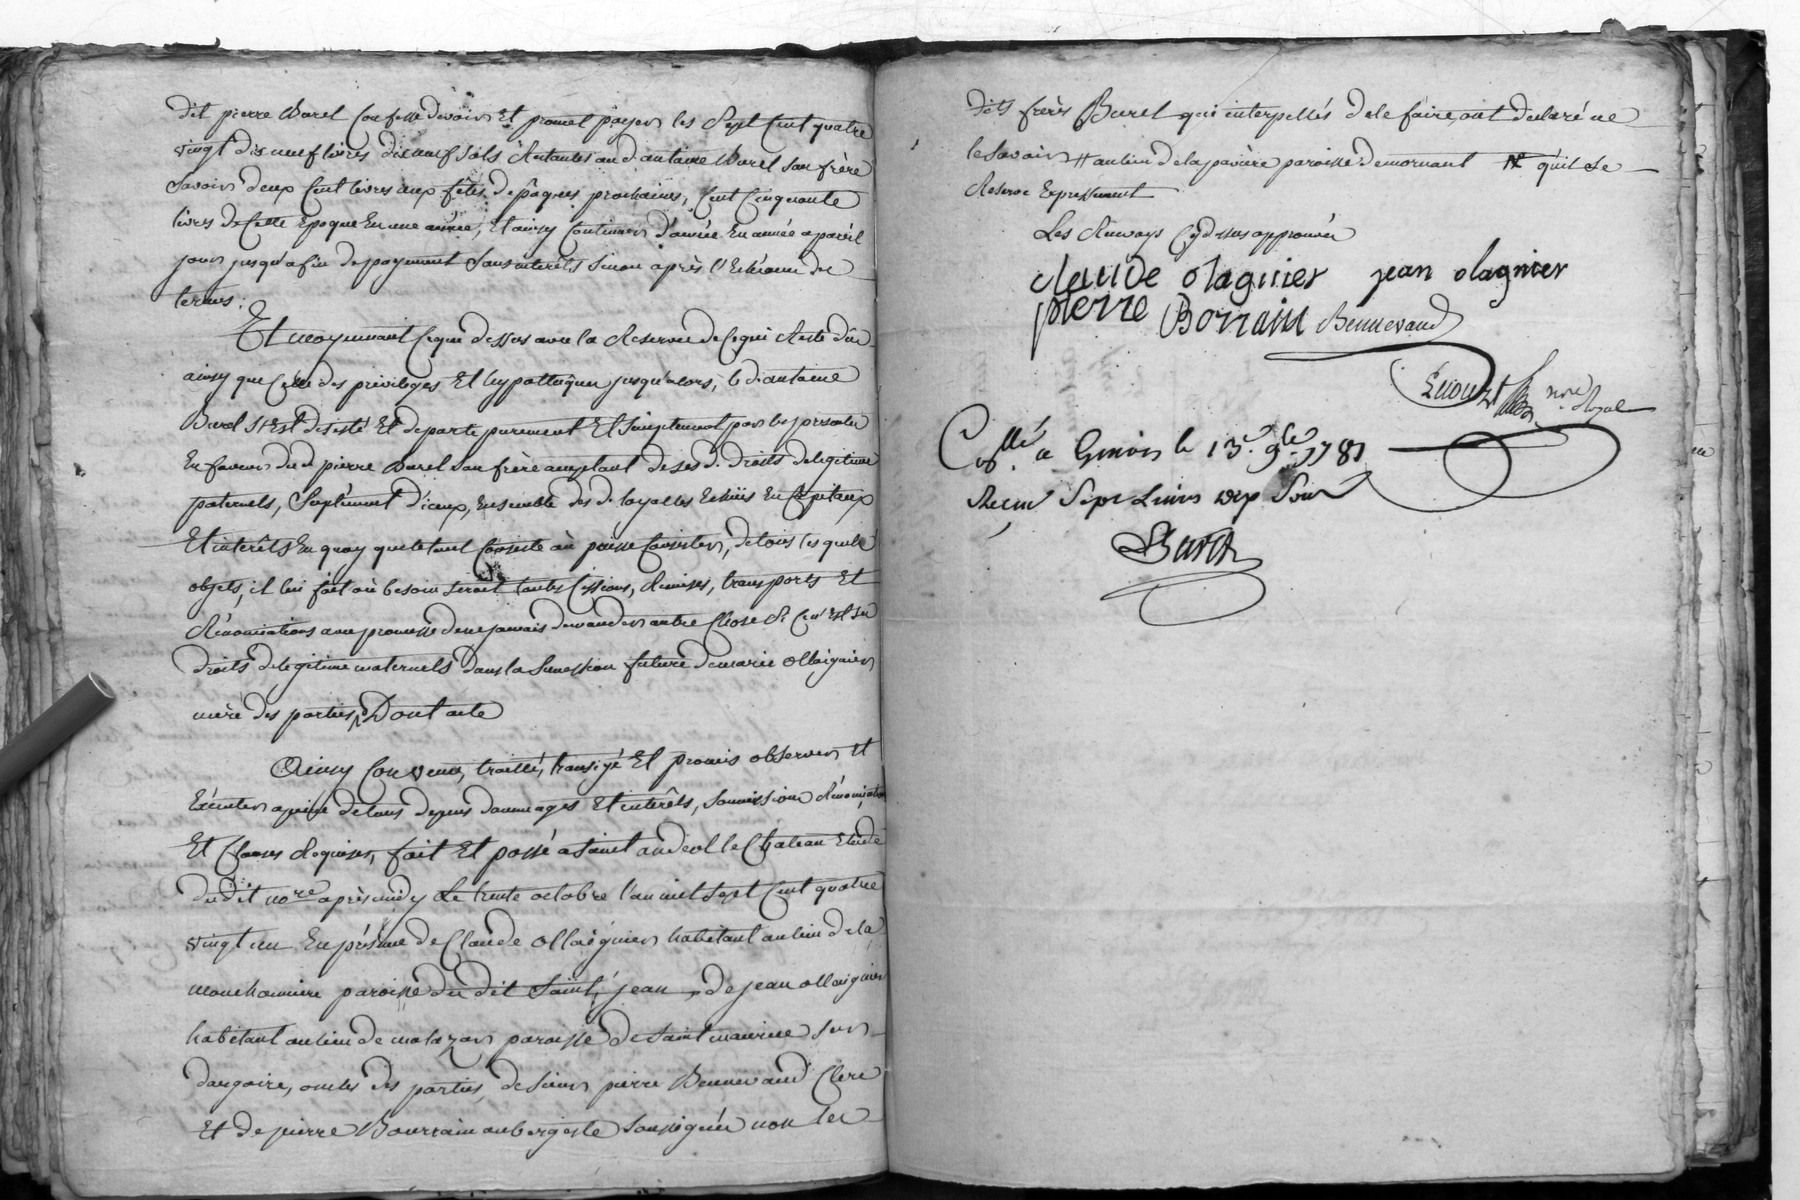 dit pierre Burel Confesse devoir Et promet payer les Sept Cent quatre
vingt dix neuf livres dix neuf sols Restantes au d. antoine Burel son frère
Savoir deux Cent livres aux fêtes de pâques prochaines, Cent Cinquante
livres de Cette Epoque En une année, Et ainsy Continuer d'année En année a pareil
jour jusqu'a fin de payement Sans interêts Sinon après l'Echéance des
termes.
Et moyennant Ce que dessus avec la Reserve de Ce qui Reste dû
ainsy que Celle des privileges Et hypotheques jusqu'alors, le d. antoine
Burel S'Est desisté Et departi purement Et Simplement par les presentes
En faveur du d. pierre Burel Son frère acceptant de ses d. Droits de legitime
paternels, Suplément d'iceux, Ensemble des d. loyalles Echües En Capitaux
Et interêts En quoy que le tout Consiste ou puisse Consister, de tous les quels
objets, il lui fait où besoin Seroit toutes Cessions, Remises, transports Et
Rénonciations avec promesse de ne jamais demander autre Chose Si Ce n'Est Ses
droits de legitime maternels dans la Succession future de marie ollaignier
mère des parties, Dont acte
Ainsy Convenu, traitté, transigé Et promis observer Et
Exécuter a peine de tous depens dommages Et interêts, Soumissions Rénonciations
Et Clauses Requises, fait Et passé a Saint andeol le Chateau Etude
du dit no.re après midy Le trente octobre l'an mil Sept Cent quatre
vingt un En présence de Claude ollaignier habitant au lieu de la
mouchonniere paroisse du dit Saint jean, de jean ollaignier
habitant au lieu de malazar paroisse de Saint maurice Sur
dargoire, oncles des parties, de Sieur pierre Bennevaud Clerc
Et de pierre Bourrain aubergiste Soussignés non les
dits frères Burel qui interpellés de le faire, ont declaré ne
le Savoir # au lieu de la pavière paroisse de mornant # qu'il Se
Reserve Expressement
Les Renvoys Cy dessus approuvés
claude olagnier jean olagnier
pierre Borrain Bennevaud
Enouzt no.re Royal
C.ollé a Givors le 13.e 9.bre 1781
Recu Sept Livres dix Sols
Barth